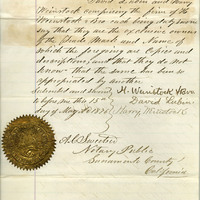 David Lubin and Harry
Weinstock comprising the firm of
Weinstock & Bro each being duly sworn
say that they are the exclusive owners
of the Trade Mark and Name of
which the foregoing are Copies and
descriptions, and that they do not
know that the same has been so
appropriated by another.
Subscribed and sworn H. Weinstock & Bro
to before me this 15th David Lubin
day of May A.D. 187 Harry Weinstock
Notary Public
Sacramento County
California